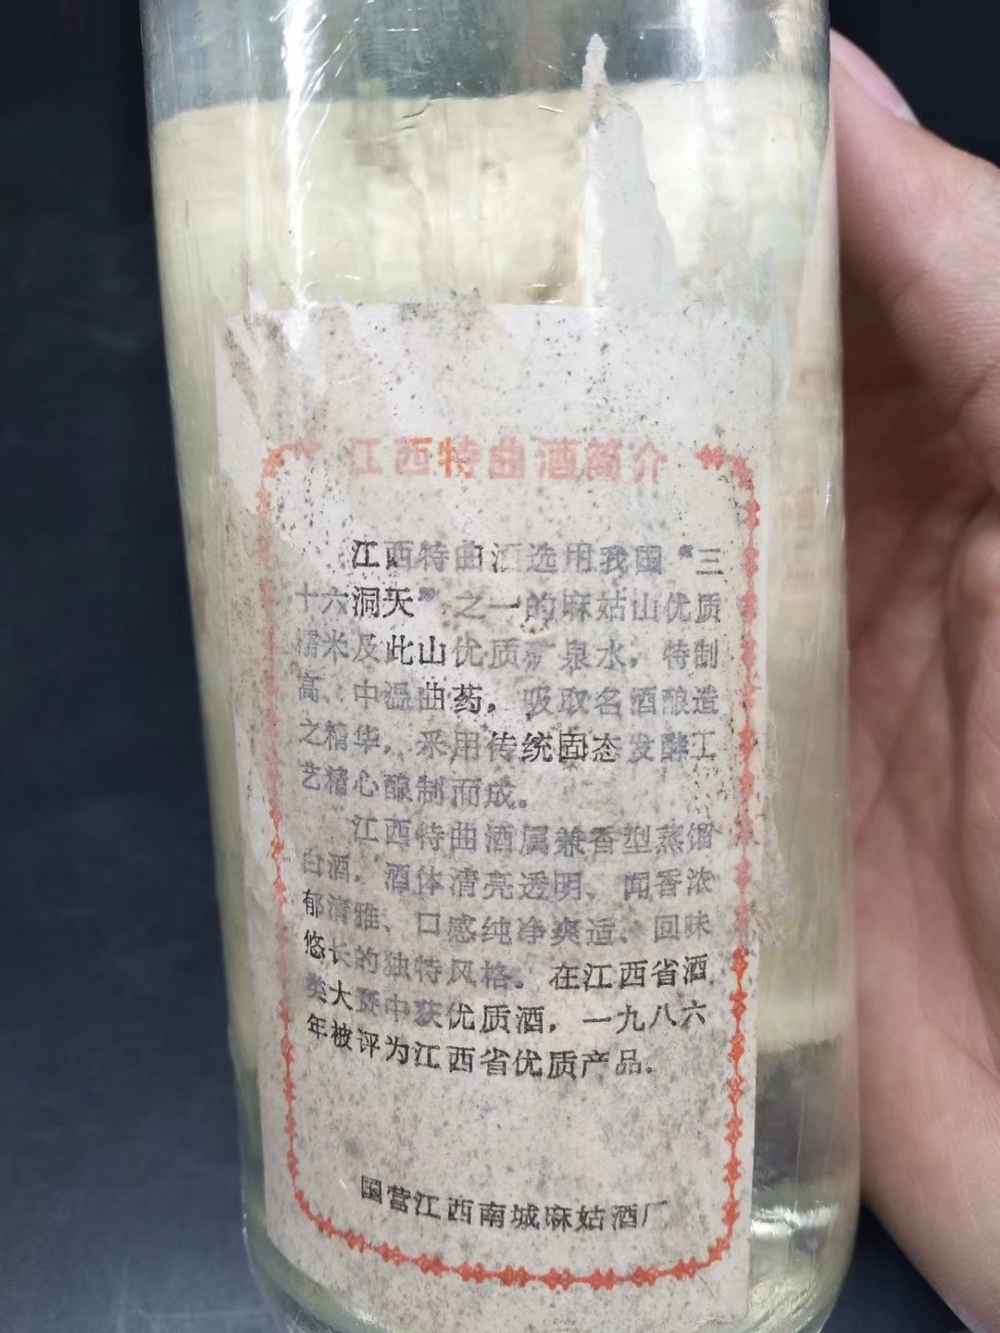 江西特曲酒简介
江西特曲酒选用我国“三
十六洞天”之一的麻姑山优质
糯米及此山优质矿泉水，特制
高、中温曲药，吸取名酒酿造
之精华，采用传统固态发酵工
艺精心酿制而成。
江西特曲酒属兼香型蒸馏
白酒，酒体清亮透明、闻香浓
郁清雅、口感纯净爽适、回味
悠长的独特风格。在江西省酒
类大赛中获优质酒，一九八六
年被评为江西省优质产品。
国营江西南城麻姑酒厂